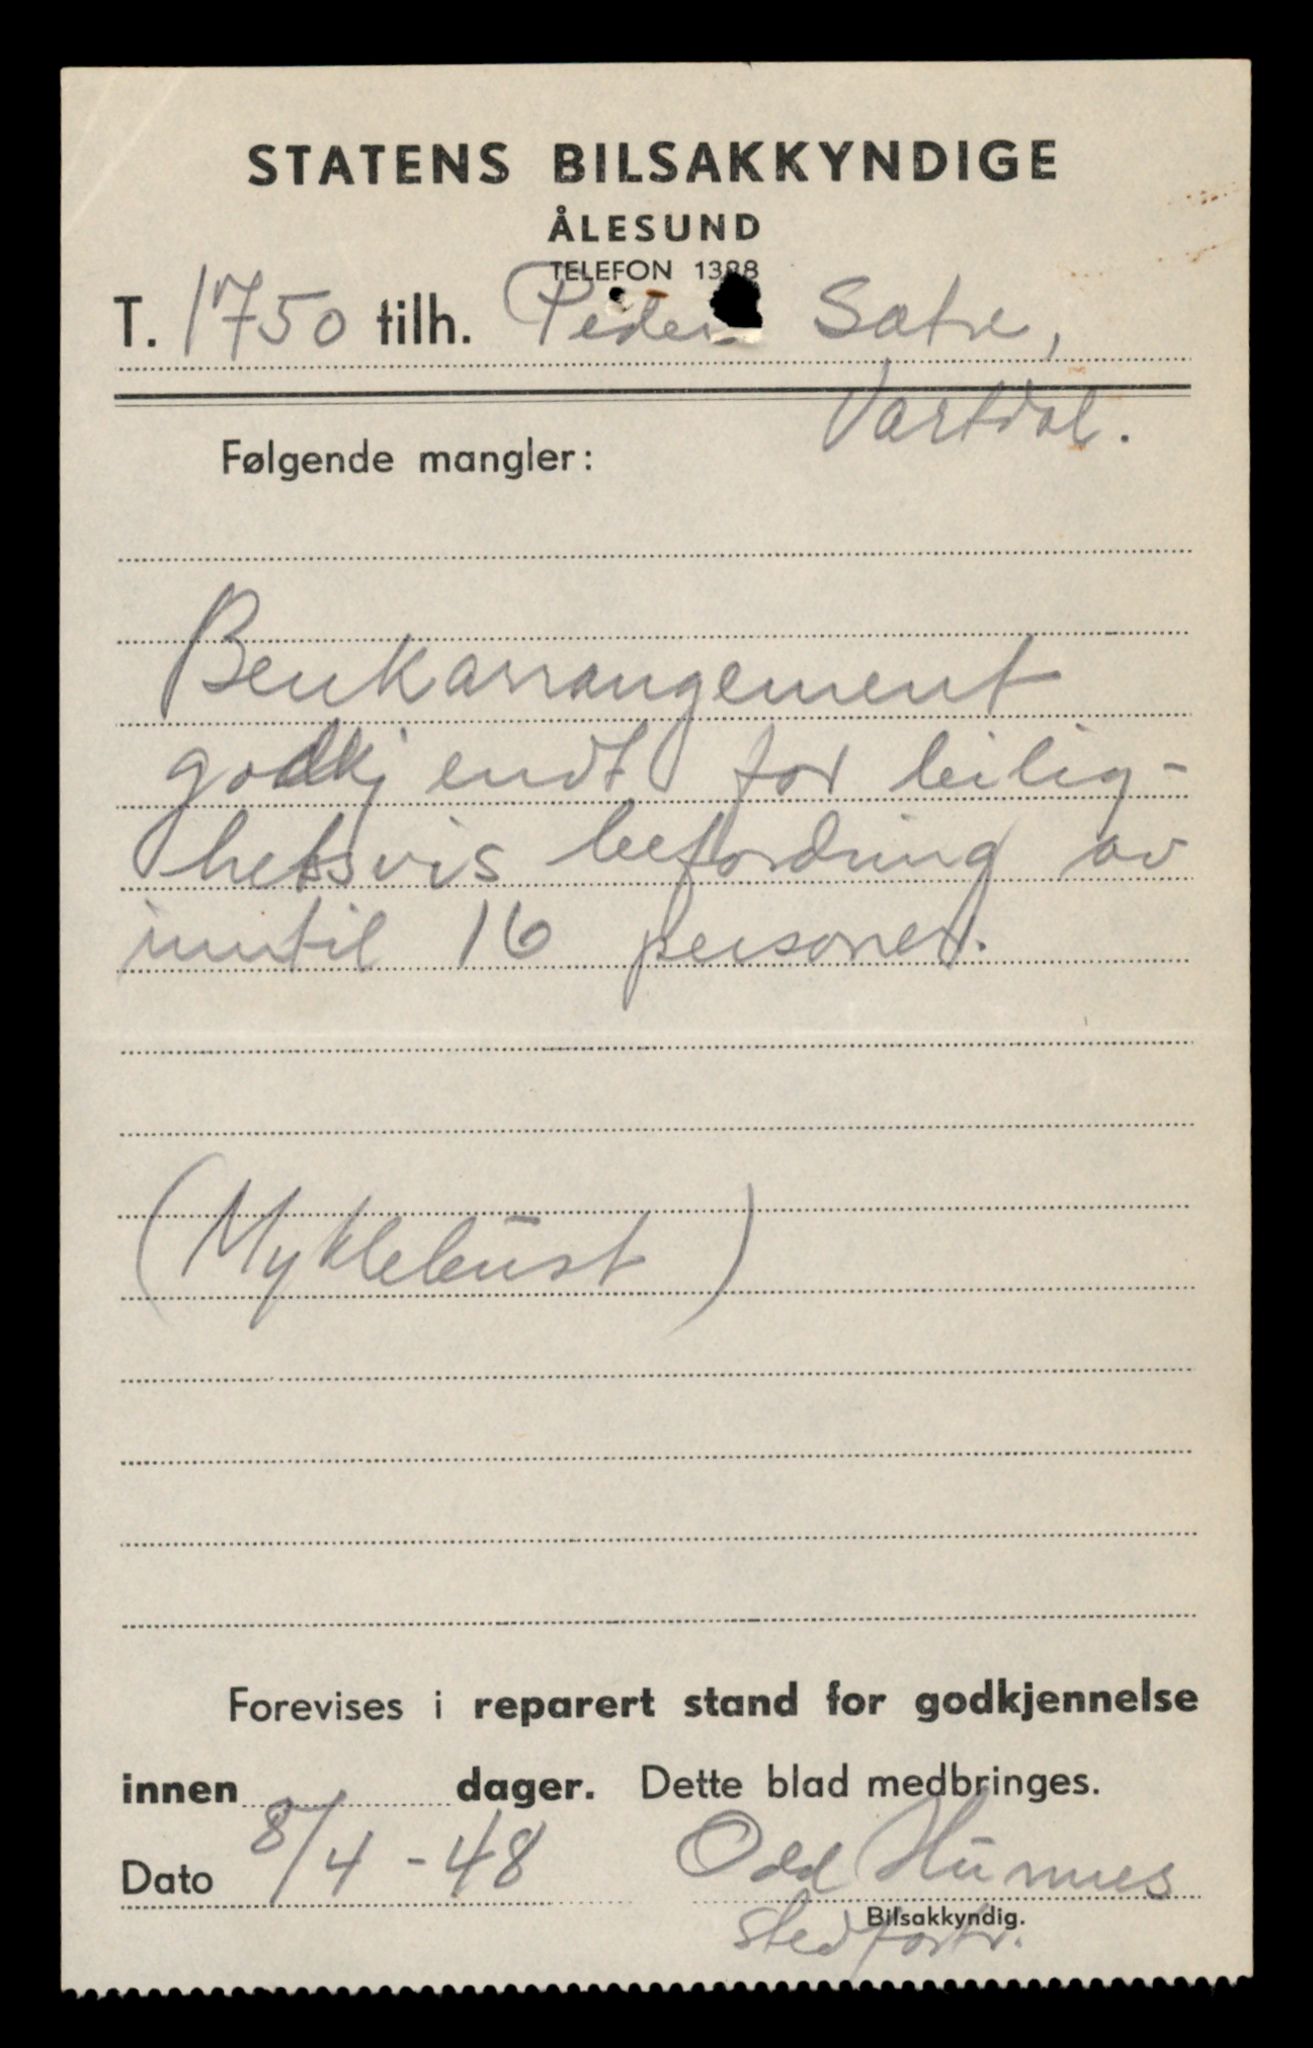 STATENS BILSAKKYNDIGE
ÅLESUND
TELEFON 1388
T. 1750 tilh. Peder Satre,
Vartdal.
Følgende mangler:
Benkarrangement
godkjendt for leilig-
hetsvis befordring av
inntil 16 personer.
(Myklebust)
Forevises i reparert stand for godkjennelse
innen dager. Dette blad medbringes.
Dato 8/4-48 Odd Hunnes
Bilsakkyndig.
stedfortr.